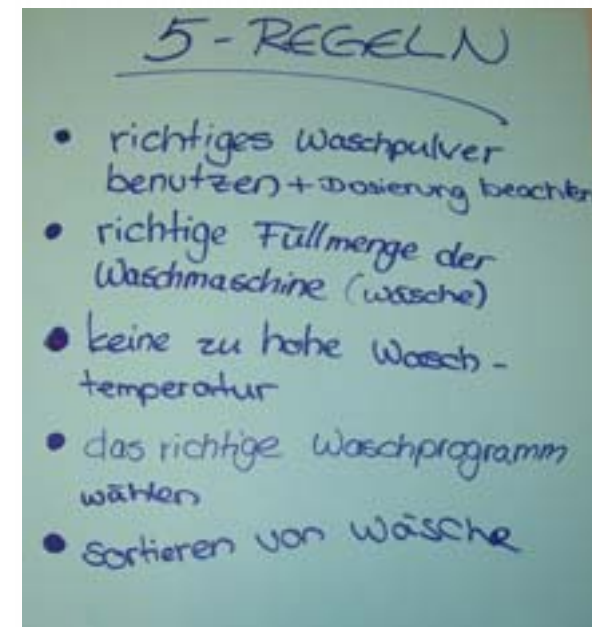 5-REGELN
• richtiges Waschpulver
benutzen + Dosierung beachten
• richtige Füllmenge der
Waschmaschine (Wäsche)
• keine zu hohe Wasch-
temperatur
• das richtige Waschprogramm
wählen
• sortieren von Wäsche